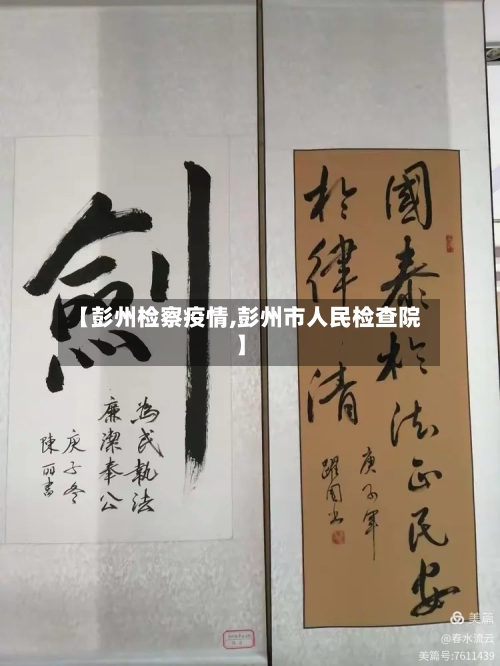 劍
為民執法
廉潔奉公
庚子冬
陳丽書
國泰於法正民安
於律清
庚子年
躍國书
【彭州检察疫情,彭州市人民检查院
】
美篇
@春水流云
美篇号:7611439